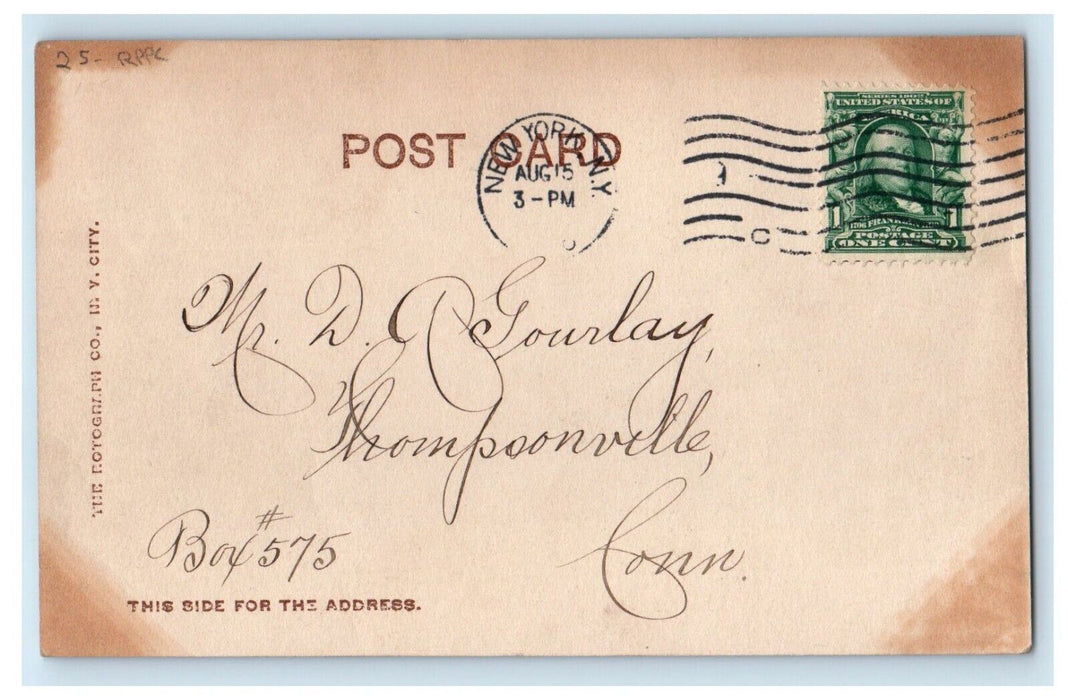 25- RPPC
POST CARD
NEW YORK, N.Y.
AUG 15
3-PM
SERIES 1902
UNITED STATES OF
AMERICA
1 FRANKLIN 1
POSTAGE
ONE CENT
THE ROTOGRAPH CO., N. Y. CITY.
Mr. D. Gourlay,
Thompsonville,
Box #575
Conn.
THIS SIDE FOR THE ADDRESS.